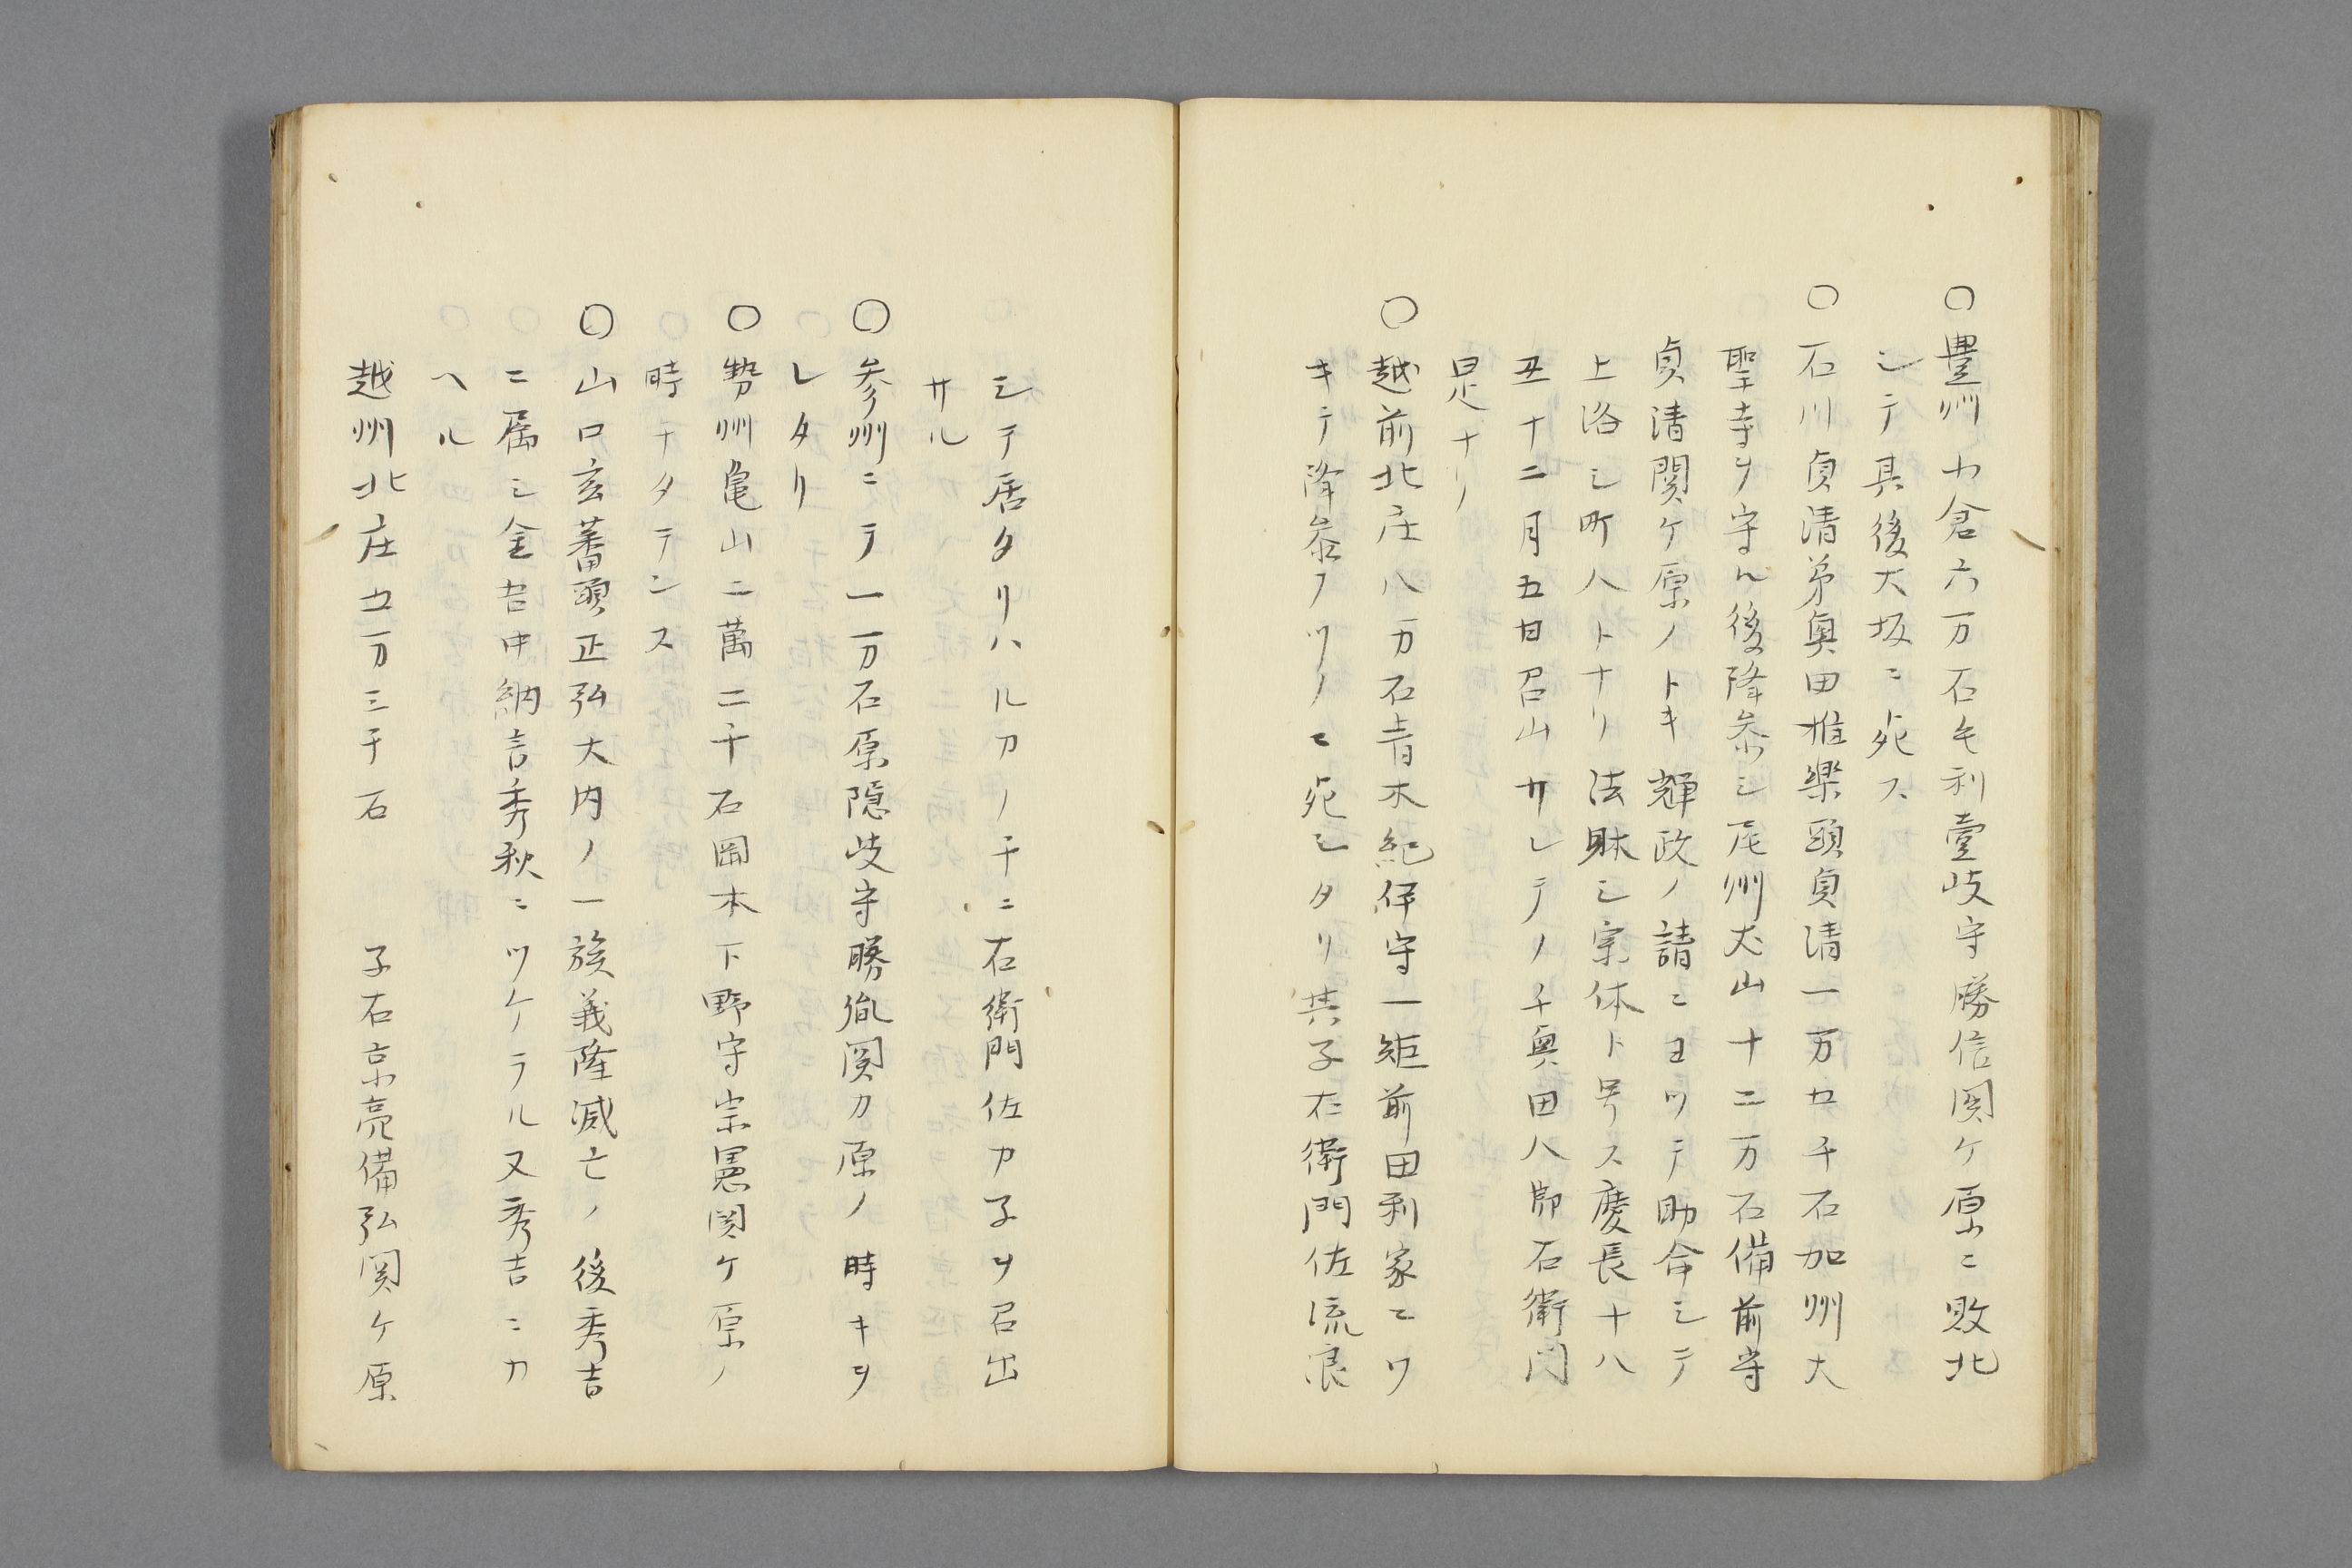 〇豊州小倉六万石毛利壹岐守勝信関ケ原ニ敗北
シテ其後大坂ニ死ス
〇石川貞清弟奥田雅樂頭貞清一万五千石加州大
聖寺ヲ守ル後降参シ尾州犬山十二万石備前守
貞清関ケ原ノトキ輝政ノ請ニヨツテ助命シテ
上洛シ町人トナリ法躰シ宗休ト号ス慶長十八
丑十二月五日召出サレテノチ奥田八郎右衛門
是ナリ
〇越前北庄八万石青木紀伊守一矩前田利家ニツ
キテ降参ノツノニ死シタリ其子右衛門佐流浪
シテ居タリハルカノチニ右衛門佐カ子ヲ召出
サル
〇参州ニテ一万石原隠岐守勝胤関カ原ノ時キラ
レタリ
〇勢州亀山二萬二千石岡本下野守宗憲関ケ原ノ
時チタテンス
〇山口玄蕃頭正弘大内ノ一族義隆滅亡ノ後秀吉
ニ属シ金吾中納言秀秋ニツケラル又秀吉ニカ
ヘル
越州北庄五万三千石　子右京亮備弘関ケ原